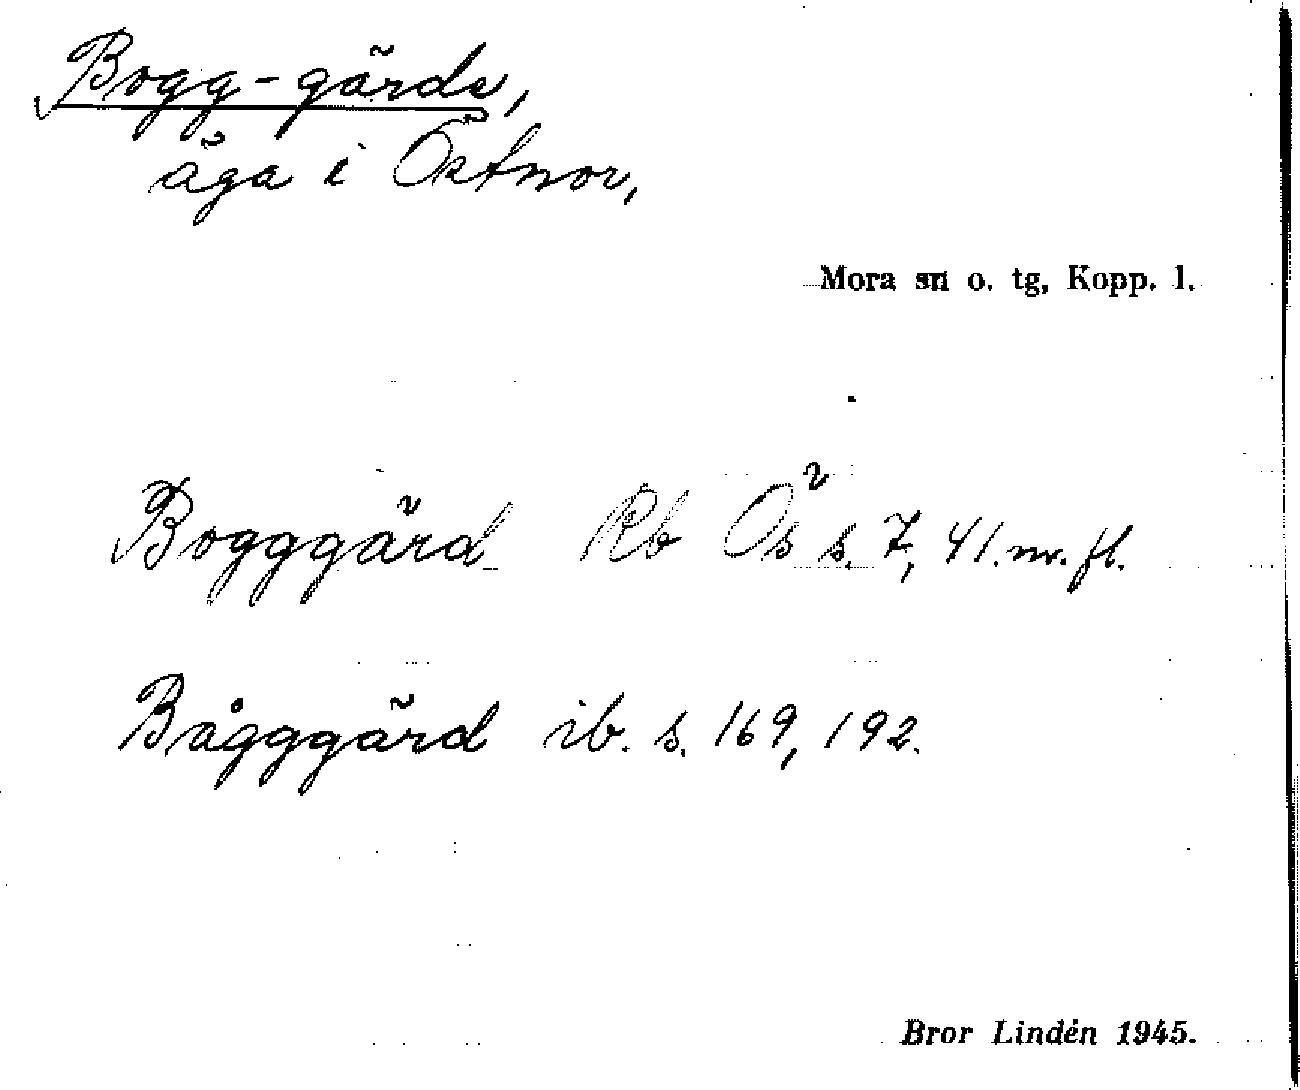 Bogg-gärde,
äga i Östnor,
Mora sn o. tg, Kopp. l.
Bogggärd Rb Ös s. 7, 41. m. fl.
Bågggärd ib. s. 169, 192.
Bror Lindén 1945.